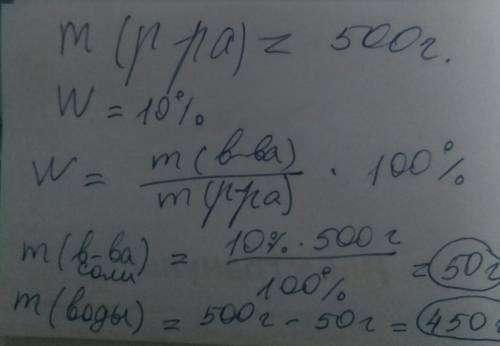 m (р-ра) = 500г.
W = 10%
W = m(в-ва) / m(р-ра) · 100%
m(в-ва соли) = 10% · 500г / 100% = 50г
m(воды) = 500г - 50г = 450г